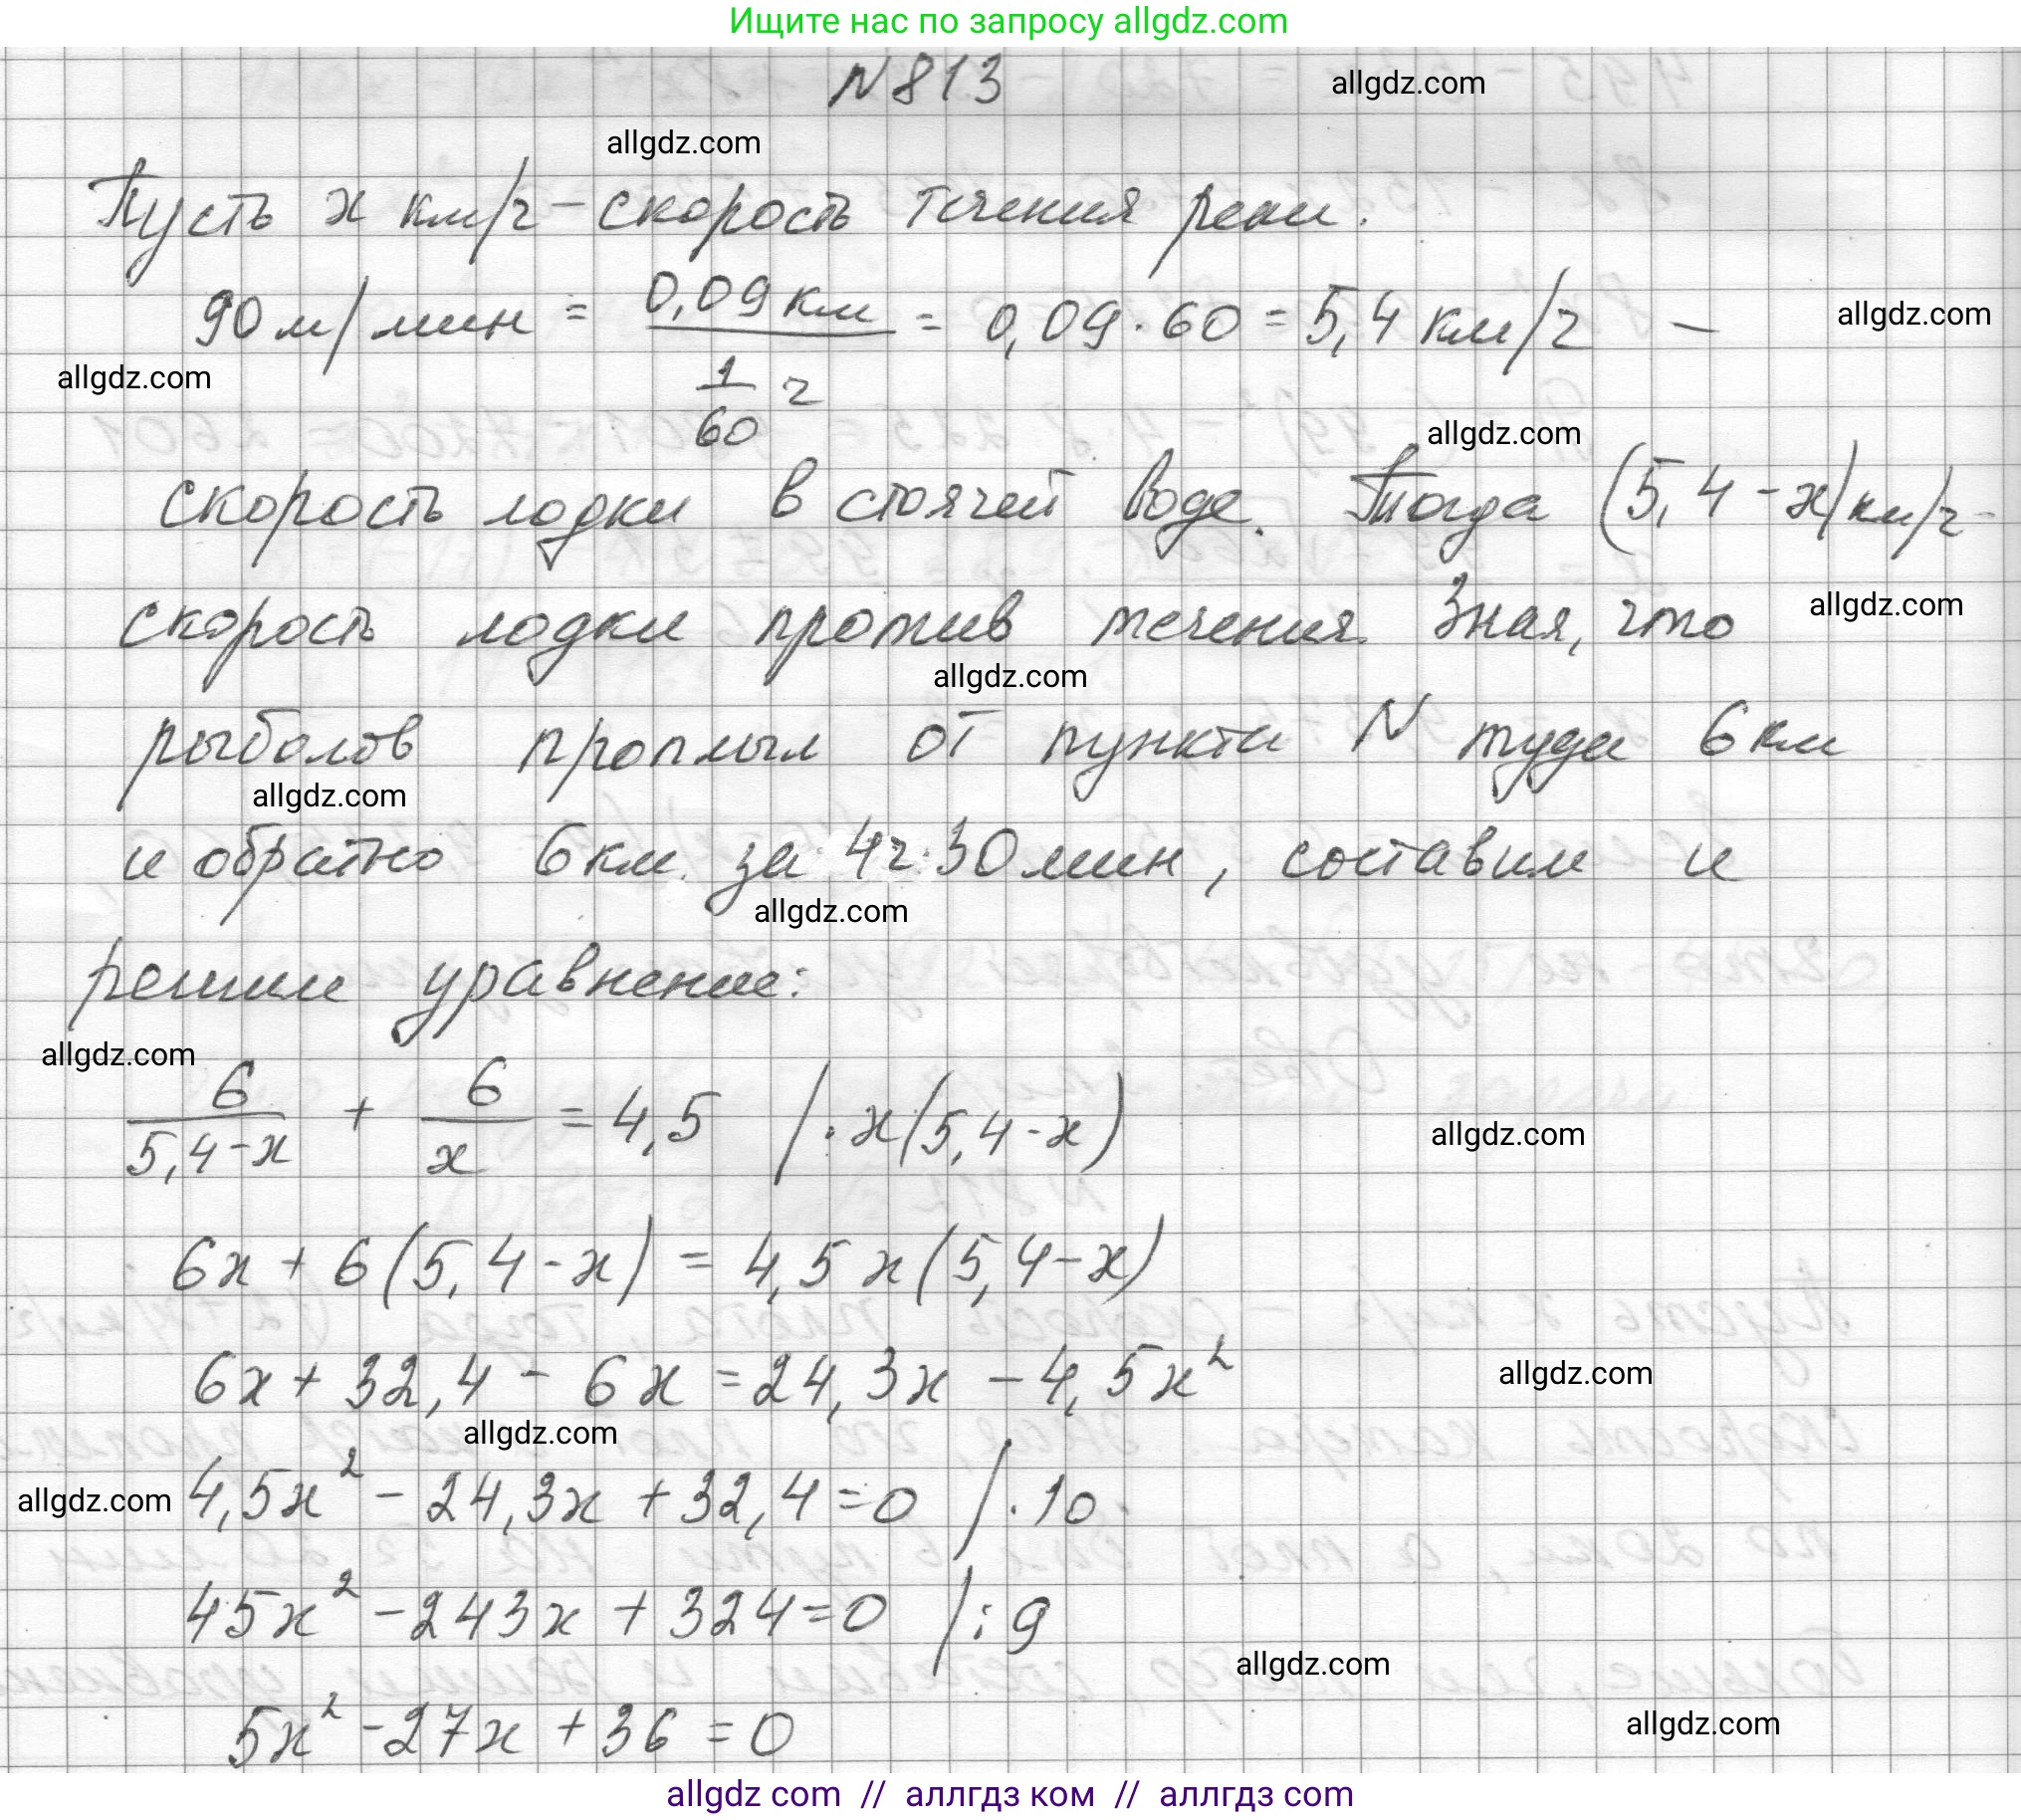 Ищите нас по запросу allgdz.com
N813
allgdz.com
allgdz.com
Пусть x км/ч - скорость течения реки.
90 м/мин = 0,09 км / 1/60 ч = 0,09 · 60 = 5,4 км/ч —
allgdz.com
allgdz.com
allgdz.com
скорость лодки в стоячей воде. Тогда (5,4 - x) км/ч -
allgdz.com
скорость лодки против течения. Зная, что
allgdz.com
рыболов проплыл от пункта N туда 6 км
allgdz.com
и обратно 6 км за 4ч 30 мин, составим и
allgdz.com
решим уравнение:
allgdz.com
6/(5,4-x) + 6/x = 4,5 / · x(5,4-x)
allgdz.com
6x + 6(5,4-x) = 4,5x(5,4-x)
6x + 32,4 - 6x = 24,3x - 4,5x²
allgdz.com
allgdz.com
allgdz.com
4,5x² - 24,3x + 32,4 = 0 / · 10
45x² - 243x + 324 = 0 / : 9
allgdz.com
5x² - 27x + 36 = 0
allgdz.com
allgdz com // аллгдз ком // аллгдз com